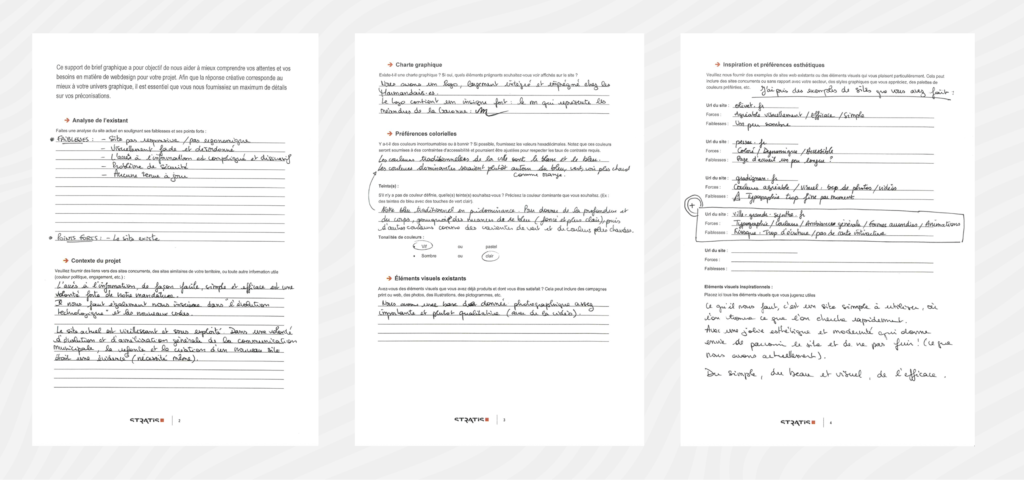 Ce support de brief graphique a pour objectif de nous aider à mieux comprendre vos attentes et vos
besoins en matière de webdesign pour votre projet. Afin que la réponse créative corresponde au
mieux à votre univers graphique, il est essentiel que vous nous fournissiez un maximum de détails
sur vos préconisations.
→ Analyse de l'existant
Faites une analyse du site actuel en soulignant ses faiblesses et ses points forts :
FAIBLESSES : - Site pas responsive / pas ergonomique
- Visuellement fade et désordonné
- L'accès à l'information est compliqué et dissuasif
- Problème de sécurité
- Aucune tenue à jour
POINTS FORTS : - Le site existe
→ Contexte du projet
Veuillez fournir des liens vers des sites concurrents, des sites similaires de votre territoire, ou toute autre information utile
(couleur politique, engagement, etc.) :
L'accès à l'information, de façon facile, simple et efficace est une
volonté forte de notre mandature.
Il nous faut également nous inscrire dans "l'évolution
technologique" et les nouveaux codes.
Le site actuel est vieillissant et sous exploité. Dans une volonté
d'évolution et d'amélioration générale de la communication
municipale, la refonte et la création d'un nouveau site
était une évidence (nécessité même).
STRATIS | 2
→ Charte graphique
Existe-t-il une charte graphique ? Si oui, quels éléments prégnants souhaitez-vous voir affichés sur le site ?
Nous avons un logo, largement intégré et imprégné chez les
Marmandais.es.
Le logo contient un insigne fort : le m qui représente les
méandres de la Garonne :
→ Préférences colorielles
Y a-t-il des couleurs incontournables ou à bannir ? Si possible, fournissez les valeurs hexadécimales. Notez que les couleurs
seront soumises à des contraintes d'accessibilité et pourraient être ajustées pour respecter les taux de contraste requis.
Les couleurs traditionnelles de la ville sont le blanc et le bleu.
Les couleurs dominantes seraient plutôt autour du bleu, vert, voir plus chaud
comme orange.
Teinte(s) :
S'il n'y a pas de couleur définie, quelle(s) teinte(s) souhaitez-vous ? Précisez la couleur dominante que vous souhaitez. (Ex :
des teintes de bleu avec des touches de vert clair).
Notre bleu traditionnel en prédominance. Pour donner de la profondeur et
du corps, pourquoi pas des nuances de ce bleu (foncé et plus clair) puis
d'autres couleurs comme des variantes de vert et de couleurs plus chaudes.
Tonalités de couleurs :
• Vif ou pastel
• Sombre ou clair
→ Éléments visuels existants
Avez-vous des éléments visuels que vous avez déjà produits et dont vous êtes satisfait ? Cela peut inclure des campagnes
print ou web, des photos, des illustrations, des pictogrammes, etc.
Nous avons une base de donnée photographique assez
importante et plutôt qualitative (avec de la vidéo).
STRATIS | 3
→ Inspiration et préférences esthétiques
Veuillez nous fournir des exemples de sites web existants ou des éléments visuels qui vous plaisent particulièrement. Cela peut
inclure des sites concurrents ou sans rapport avec votre secteur, des styles graphiques que vous appréciez, des palettes de
couleurs préférées, etc.
J'ai pris des exemples de sites que vous avez fait :
Url du site : olivet.fr
Forces : Agréable visuellement / efficace / Simple
Faiblesses : Un peu sombre
Url du site : pessac.fr
Forces : Coloré / Dynamique / Accessible
Faiblesses : Page d'accueil un peu longue ?
Url du site : gradignan.fr
Forces : Couleurs agréable / visuel : top de photos / vidéos
Faiblesses : Typographie trop fine par moment
Url du site : ville-grande-synthe.fr
Forces : Typographie / Couleurs / Ambiance générale / Formes arrondies / Animations
Faiblesses : Kiosque : Trop d'écriture / pas de carte interactive
Url du site :
Forces :
Faiblesses :
Éléments visuels inspirationnels :
Placez ici tous les éléments visuels que vous jugerez utiles.
Ce qu'il nous faut, c'est un site simple à utiliser, où
l'on trouve ce que l'on cherche rapidement.
Avec une jolie esthétique et modernité qui donne
envie de parcourir le site et de ne pas fuir ! (ce que
nous avons actuellement).
Du simple, du beau et visuel, de l'efficace.
STRATIS | 4